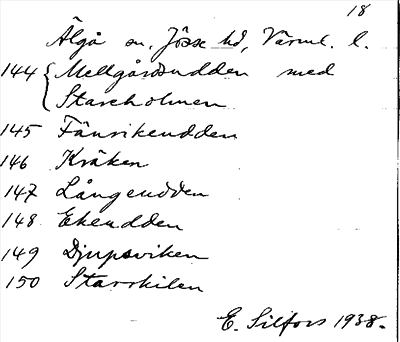 18
Älgå sn. Jösse hd, Värml. l.
144 { Mellgårdsudden med
Stareholmen
145 Fänrikeudden
146 Kråken
147 Långeudden
148 Ekeudden
149 Djupsviken
150 Starrkilen
E. Silfors 1938.